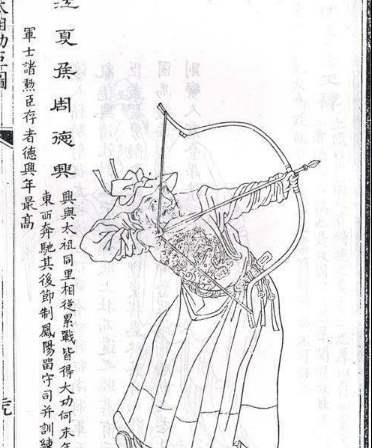 夏矦周德興
興與太祖同里相從累戰皆得大功何末年
東西奔馳其後節制鳳陽畱守司并訓練
軍士諸勳臣存者德興年最高